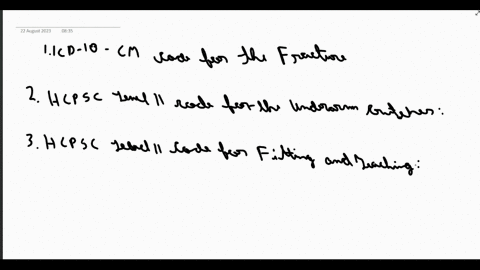 22 August 2023 08:35
1. ICD-10-CM code for the Fracture
2. HCPSC Level II code for the Underarm Crutches:
3. HCPSC Level II Code for Fitting and Teaching: